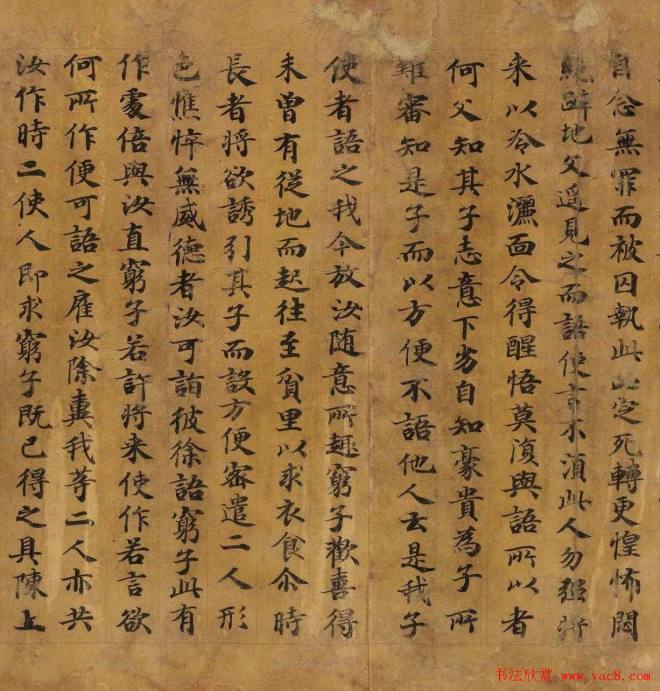 自念無罪而被囚執此必定死轉更惶怖悶
絕躃地父遥見之而語使言不須此人勿强將
来以冷水灑面令得醒悟莫復與語所以者
何父知其子志意下劣自知豪貴為子所
難審知是子而以方便不語他人云是我子
使者語之我今放汝随意所趣窮子歡喜得
未曾有從地而起往至貧里以求衣食尒時
長者将欲誘引其子而設方便密遣二人形
色憔悴無威德者汝可詣彼徐語窮子此有
作處倍與汝直窮子若許将来使作若言欲
何所作便可語之雇汝除糞我等二人亦共
汝作時二使人即求窮子既已得之具陳上
书法欣赏 www.yac8.com